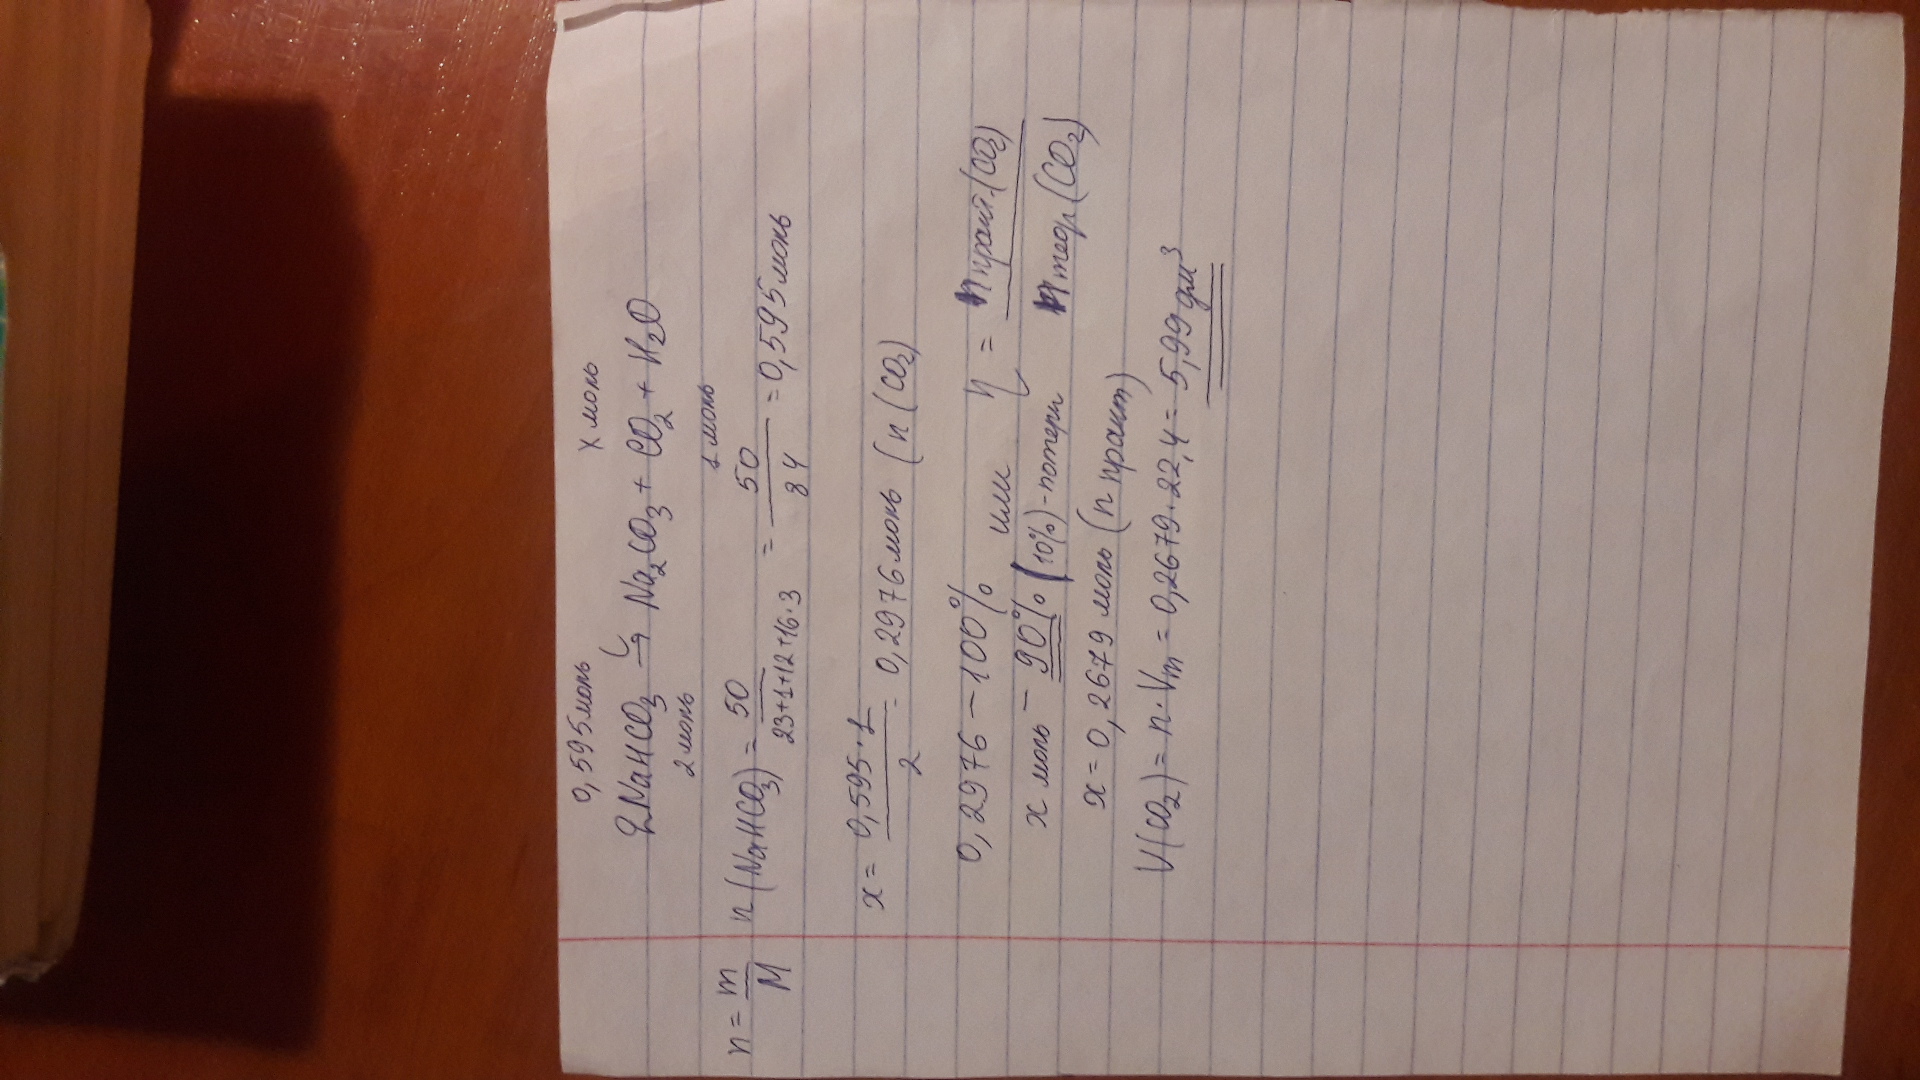 0,595моль х моль
2NaHCO3 t→ Na2CO3 + CO2 + H2O
2 моль 1 моль
n = m/M n (NaHCO3) = 50/23+1+12+16·3 = 50/84 = 0,595моль
x = 0,595·1/2 = 0,2976моль (n (CO2)
0,2976 – 100% или η = nпракт.(CO2)/nтеор(CO2)
x моль – 90% (10%)-потери
x = 0,2679 моль (n практ)
V(CO2) = n·Vm = 0,2679·22,4 = 5,99дм³